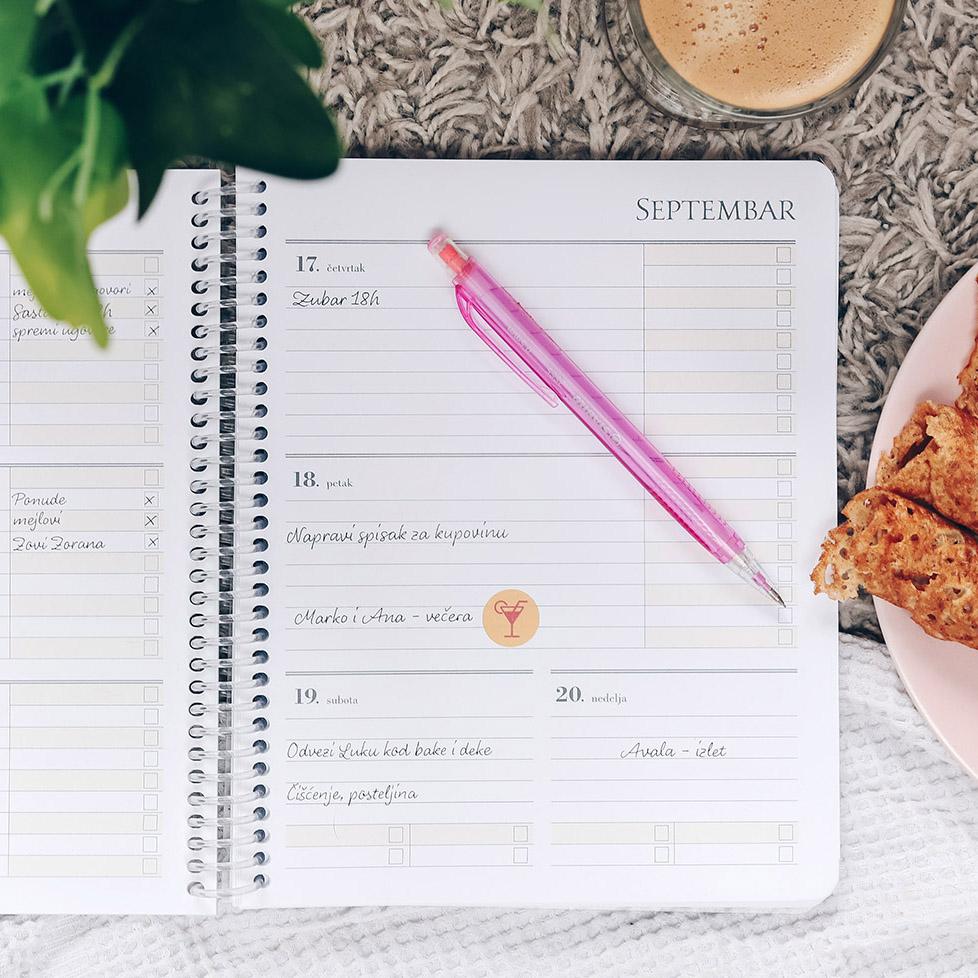 Ponude
mejlovi
Zovi Zorana
SEPTEMBAR
17. četvrtak
Zubar 18h
18. petak
Napravi spisak za kupovinu
Marko i Ana - večera
19. subota
Odvezi Luku kod bake i deke
Čišćenje, posteljina
20. nedelja
Avala - izlet